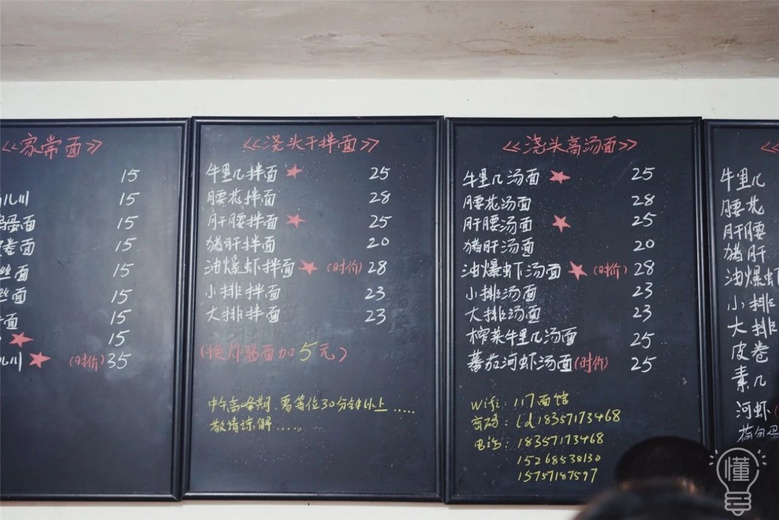 <<家常面>>
15
儿川 15
面 15
卷面 15
丝面 15
丝面 15
面 15
15
儿川 (时价) 35
<<浇头干拌面>>
牛里几拌面 25
腰花拌面 28
肝腰拌面 25
猪肝拌面 20
油爆虾拌面 (时价) 28
小排拌面 23
大排拌面 23
(换片儿面加5元)
中午高峰期,需等位30分钟以上......
敬请谅解......
<<浇头高汤面>>
牛里几汤面 25
腰花汤面 28
肝腰汤面 25
猪肝汤面 20
油爆虾汤面 (时价) 28
小排汤面 23
大排汤面 23
榨菜牛里几汤面 25
蕃茄河虾汤面(时价) 25
Wifi: 117面馆
密码: Ld18357173468
电话: 18357173468
15268538130
15757187597
<<
牛里几
腰花
肝腰
猪肝
油爆虾
小排
大排
皮卷
素几
河虾
懂